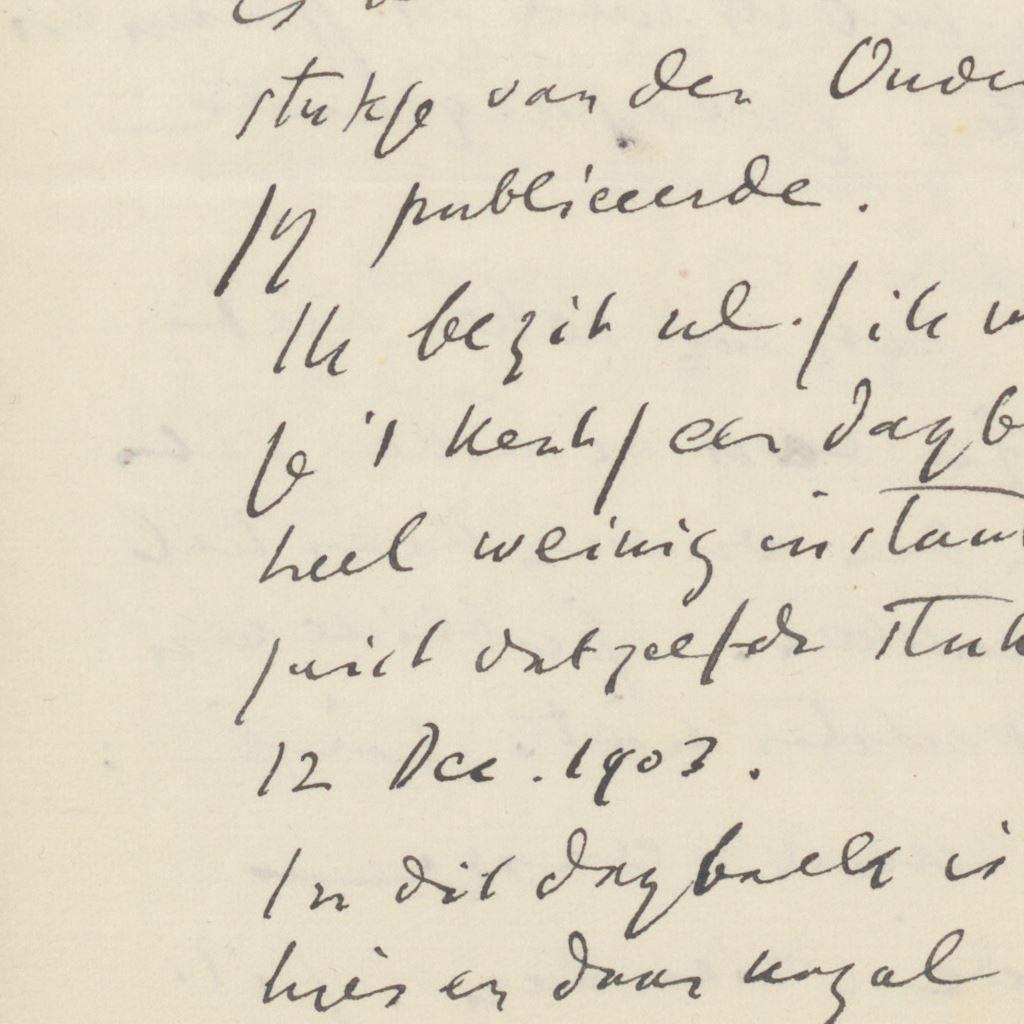 stukje van den Oude
jij publiceerde.
Ik bezit nl. / ik
je 't kent / een dagb
heel weinig instan
juist datzelfde stuk
12 Dec. 1903.
In dit dagboek is
hier en daar nogal